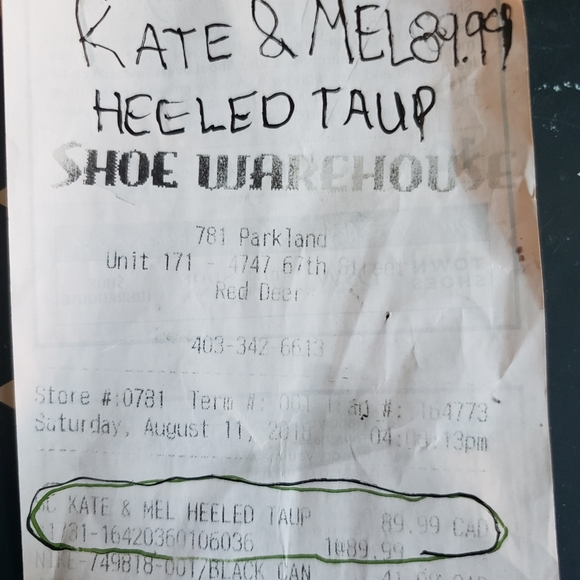 KATE & MEL 89.99
HEELED TAUP
SHOE WAREHOUSE
781 Parkland
Unit 171 - 4747 67th
Red Deer
403-342-6613
Store #:0781 Term #: 001 #: 164773
Saturday, August 11, 2018 04:09:13pm
KATE & MEL HEELED TAUP 89.99 CAD
/31-16420360106036 1@89.99
NIKE-749818-001/BLACK CAN